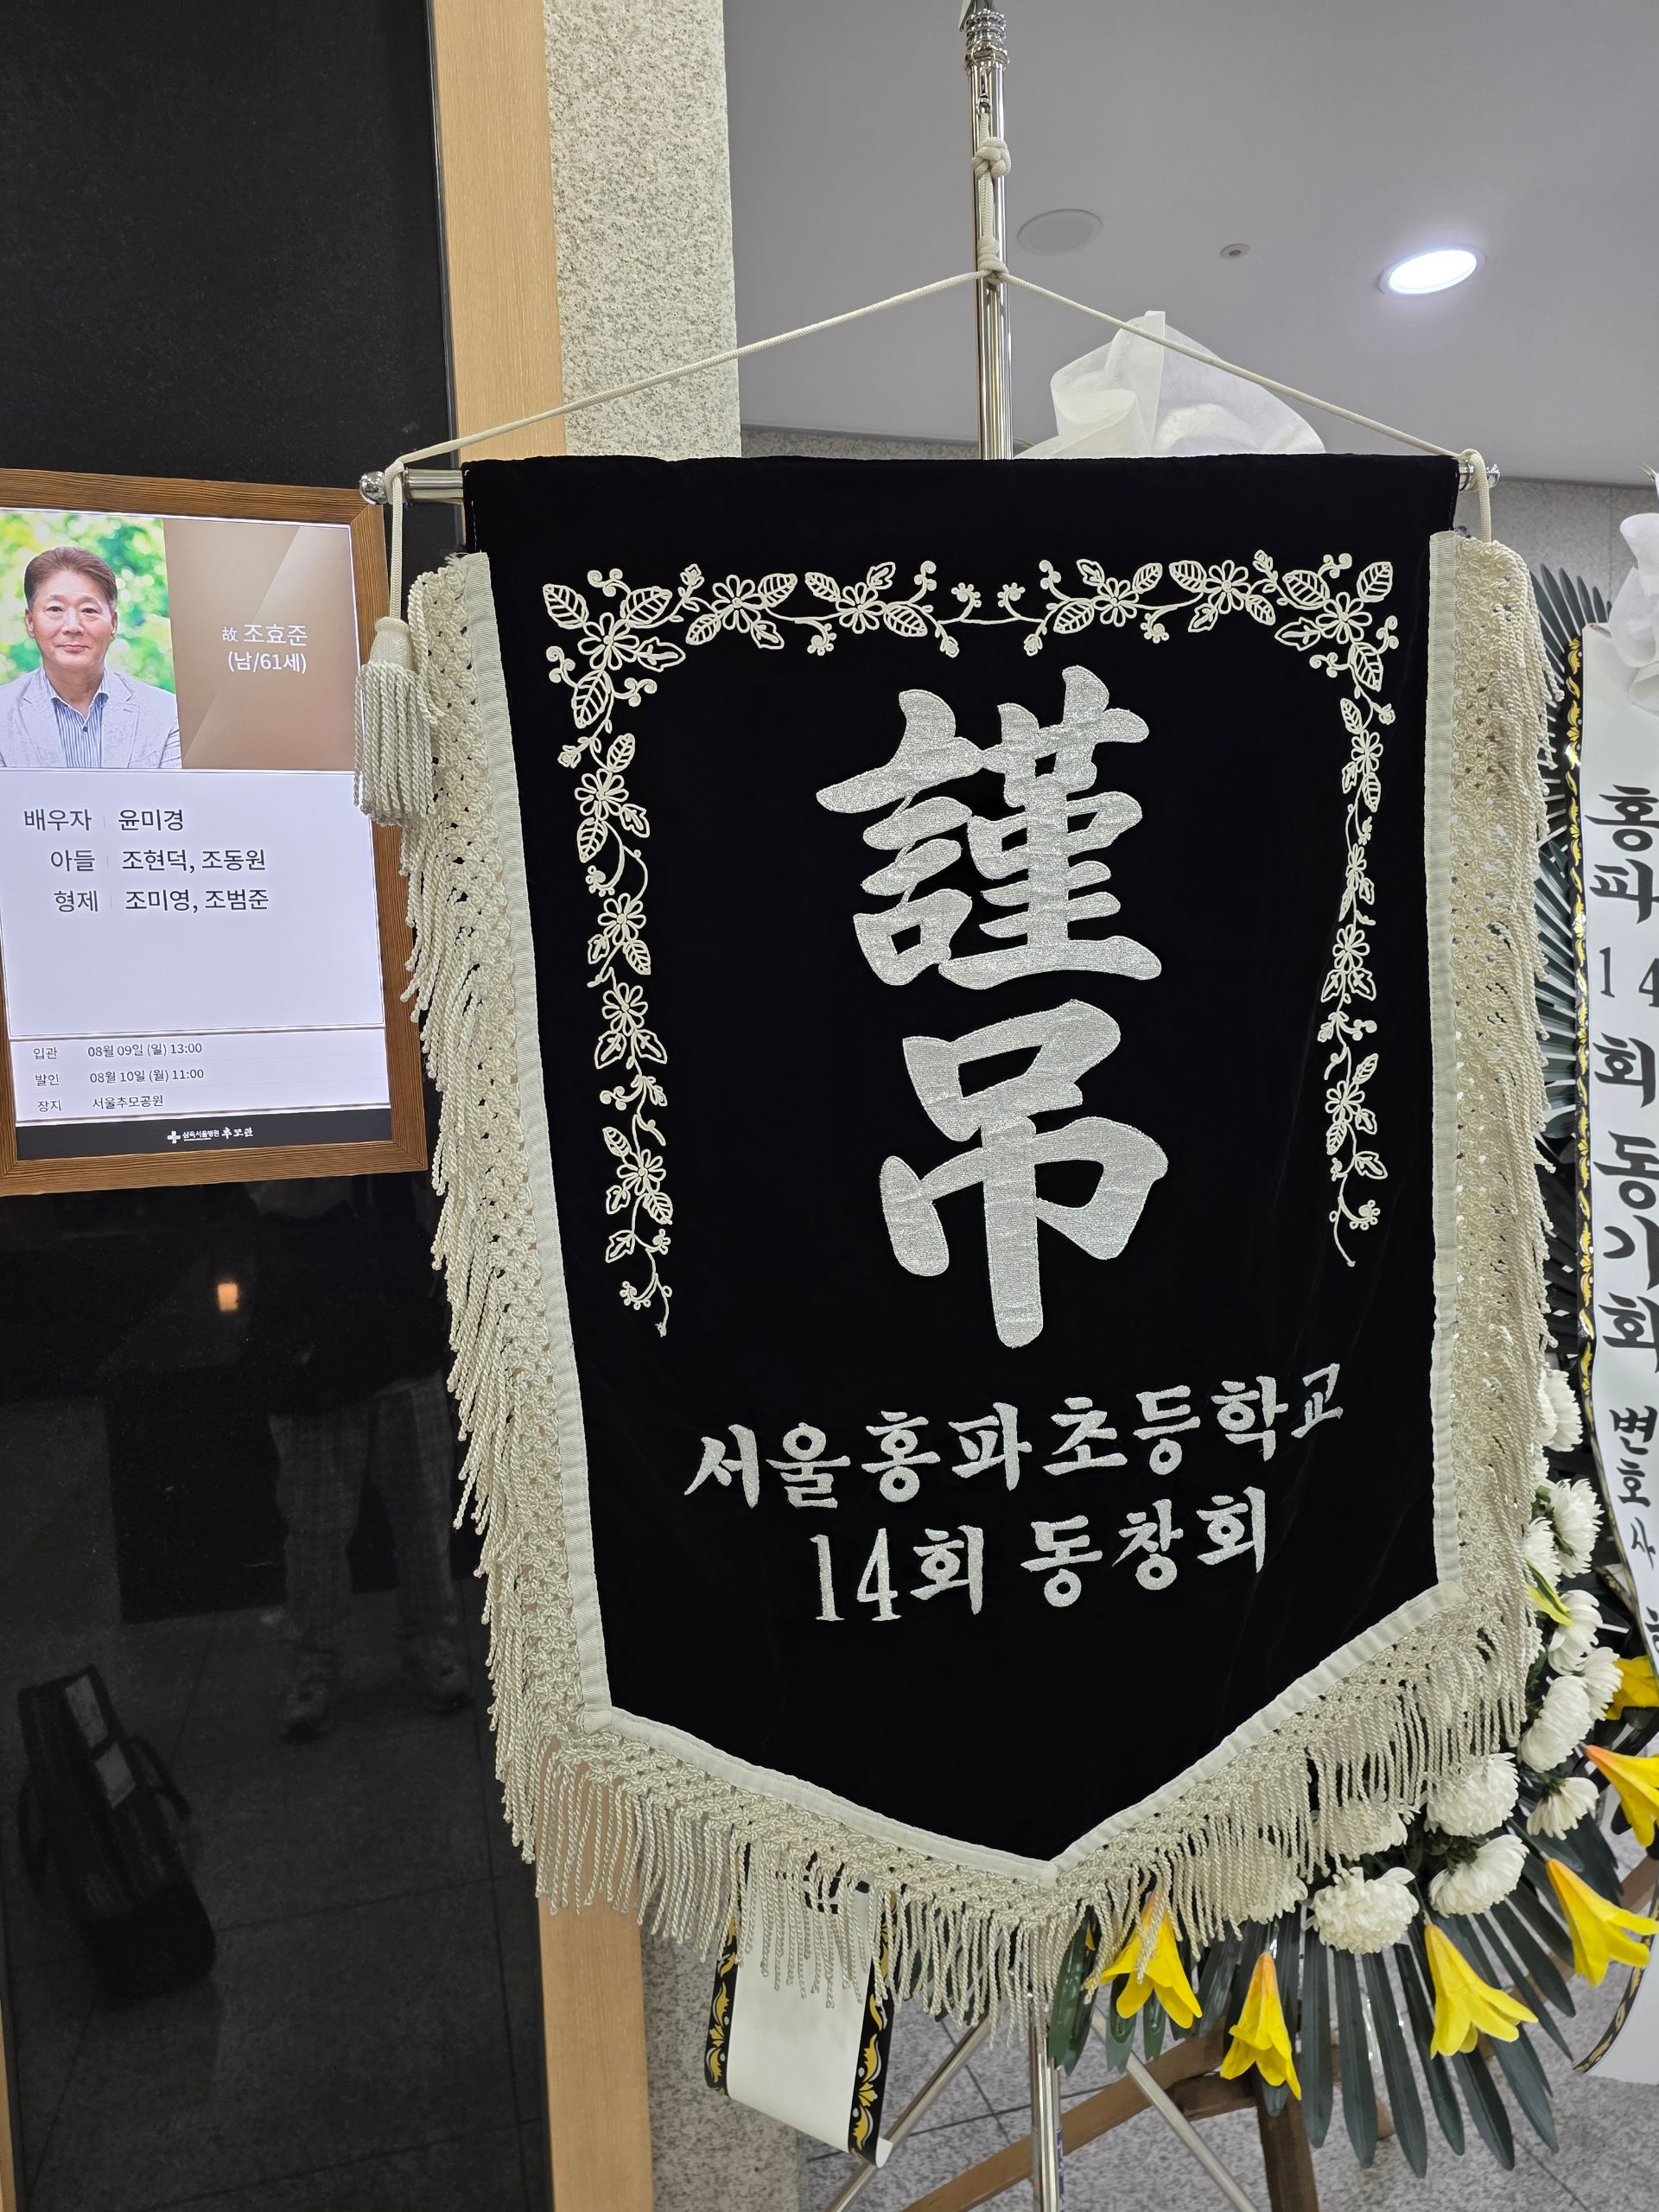 故 조효준
(남/61세)
배우자 윤미경
아들 조현덕, 조동원
형제 조미영, 조범준
입관 08월 09일 (일) 13:00
발인 08월 10일 (월) 11:00
장지 서울추모공원
삼육서울병원 추모관
謹
弔
서울홍파초등학교
14회 동창회
홍파 14회 동기회 변호사